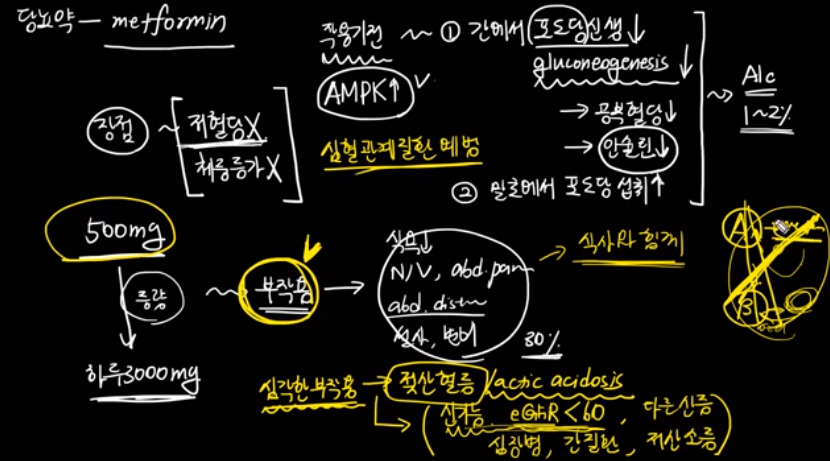 당뇨약 — metformin
작용기전 ~ ① 간에서 포도당신생↓
gluconeogenesis ↓
AMPK↑ ✓
→ 공복혈당↓
→ 인슐린↓
② 말초에서 포도당 섭취↑
~ A1c
1~2%
장점 ~ 저혈당X
체중증가X
심혈관계질환 예방
500mg
증량
하루3000mg
~ 부작용 →
식욕↓
N/V, abd. pain
abd. disten
설사, 변비
30%
→ 식사와 함께
심각한 부작용 → 젖산혈증/lactic acidosis
(신기능 eGFR<60, 다른산증
심장병, 간질환, 저산소증)
A
B